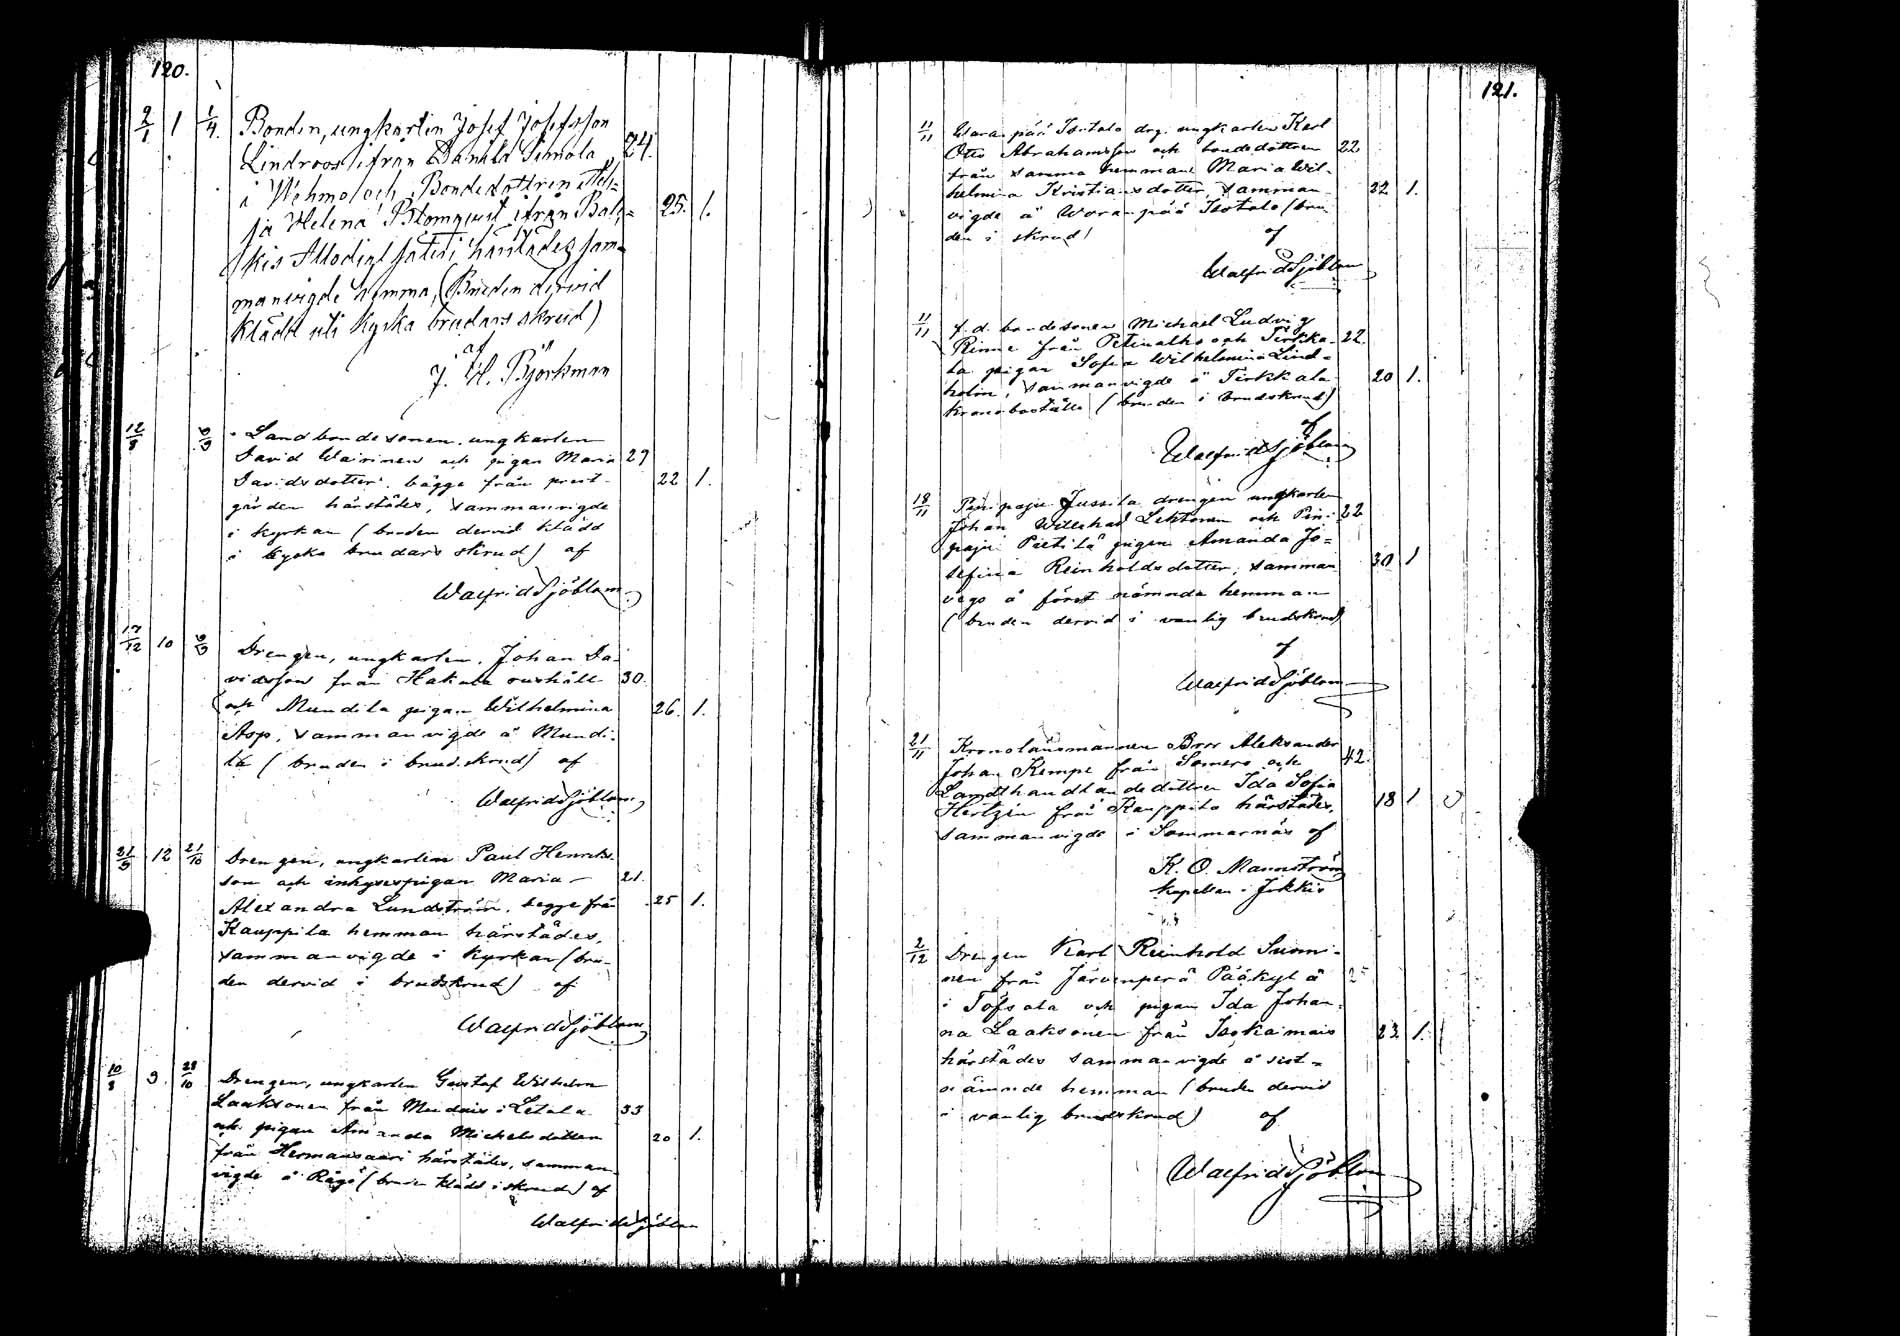 120.
2/1 1 1/4. Bonden, ungkarlen Josef Josefsson
Lindroos ifrån Danila Simola 24.
i Wehmo och Bondedottren
ja Helena Blomqvist ifrån 25. 1.
kis Allodial säteri härstädes sam=
manvigde hemma, (Bruden dervid
klädd uti kyska brudars skrud)
af
J. W. Björkman
Landbondesonen, ungkarlen
David Wairinen och pigan Maria 27
Davidsdotter, bägge från prest- 22 1.
gården härstädes, sammanvigde
i kyrkan (bruden dervid klädd
i kyska brudars skrud) af
Walfrid Sjöblom
17/12 10 Drengen, ungkarlen, Johan Da-
vidsson från Hakula rusthåll 30.
och Mundila pigan Wilhelmina 26. 1.
Asp, sammanvigde å Mundi-
la (bruden i brudskrud) af
Walfrid Sjöblom
21/9 12 21/10 Drengen, ungkarlen Paul Henriks-
son och inhysespigan Maria 21.
Alexandra Lundström, begge från 25 1.
Kauppila hemman härstädes,
sammanvigde i kyrkan (bru-
den dervid i brudskrud) af
Walfrid Sjöblom
9. 28/10 Drengen, ungkarlen Gustaf Wilhelm
Laaksonen från i Letala 33
och pigan Amanda Michelsdotter 20 1.
från Hermansaari härstädes, samman-
vigde å (bruden klädd i skrud) af
Walfrid Sjöblom
121.
11/11 Waranpää Isotalo drg. ungkarlen Karl
Otto Abrahamsson och bondedottren 22
från samma hemman Maria Wil-
helmina Kristiansdotter, samman- 22 1.
vigde å Waranpää Isotalo (bru-
den i skrud)
af
Walfrid Sjöblom
11/11 f.d. bondesonen Michael Ludvig
Rinne från och Tirkka- 22.
la pigan Sofia Wilhelmina Lind-
holm, sammanvigde å Tirkkala 20 1.
kronoboställe (bruden i brudskrud)
af
Walfrid Sjöblom
18/11 Jussila drengen ungkarlen
Johan Lehtonen och Pini- 22
paju Pietilä pigan Amanda Jo=
sefina Reinholdsdotter, samman- 30 1
vigs å först nämnda hemman
(bruden dervid i vanlig brudskrud)
af
Walfrid Sjöblom
21/11 Kronolänsmannen Bror Aleksander
Johan Kempe från Somero och 42.
Landthandlandedottren Ida Sofia
Hertzin från Kauppila härstädes, 18 1
sammanvigde i Sommarnäs af
K. O. Mannström
Kapellan i Jokkis
2/12 Drengen Karl Reinhold Suomi-
nen från Järvenperä Pääkylä
i Töfsala och pigan Ida Johan-
na Laaksonen från 23 1.
härstädes sammanvigde å sist-
nämnde hemman (bruden dervid
i vanlig brudskrud) af
Walfrid Sjöblom